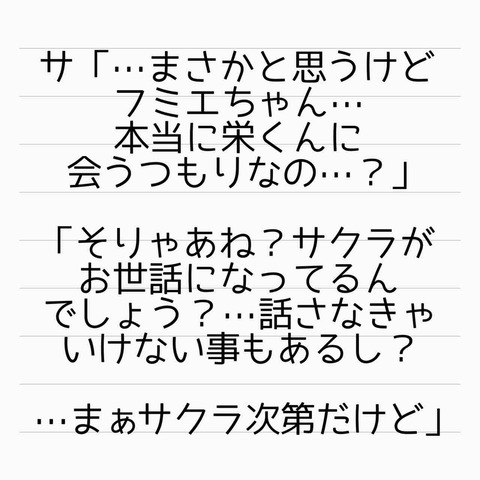 サ「…まさかと思うけど
フミエちゃん…
本当に栄くんに
会うつもりなの…？」
「そりゃあね？サクラが
お世話になってるん
でしょう？…話さなきゃ
いけない事もあるし？
…まぁサクラ次第だけど」